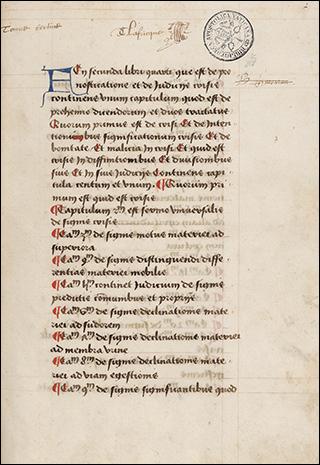 En secunda libri quarti que est de pro
nosticatione et de Judiciis crisis
continens unum capitulum quod est de
prohemio dicendorum et duos tractatus
Quorum primus est de crisi Et de Inten
tionibus significationum crisis Et de
bonitate Et malicia in crisi Et quod est
crisis in diffinitionibus Et divisionibus
suis Et in suis Judiciis Continens capi
tula centum et unum. Quorum pri
mum est quid est crisis
Capitulum 2m est sermo universalis
de signis crisis
Cam 3m de signis motus materiei ad
superiora
Cam de signis distinguendi diffe
rentias materiei mobilis
Cam continet Judicium de signis
predictis comunibus et propriis
Cam de signis declinationis mate
riei ad sudorem
Cam de signis declinationis materiei
ad membra urine
Cam 8m de signis declinationis mate
riei ad viam egestionis
Cam 9m de signis significantibus quod